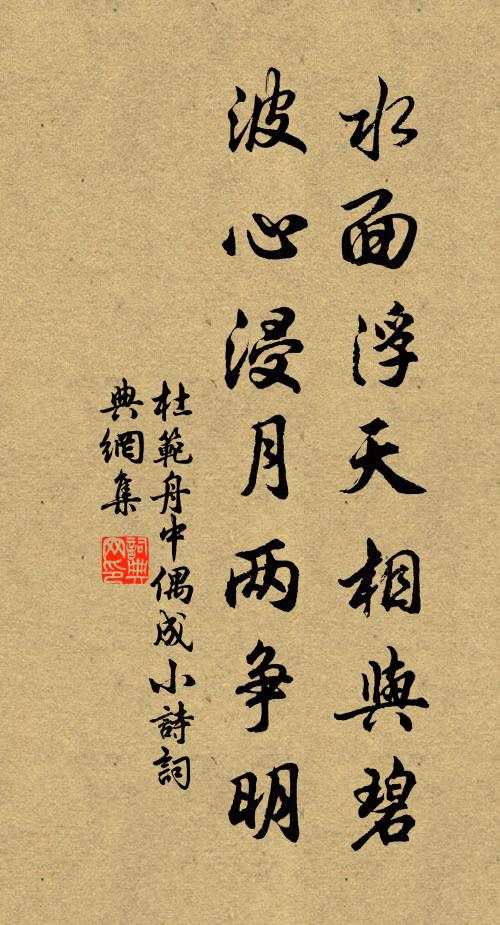 水面浮天相與碧
波心浸月两争明
杜範舟中偶成小詩詞
典網集
詞典网印